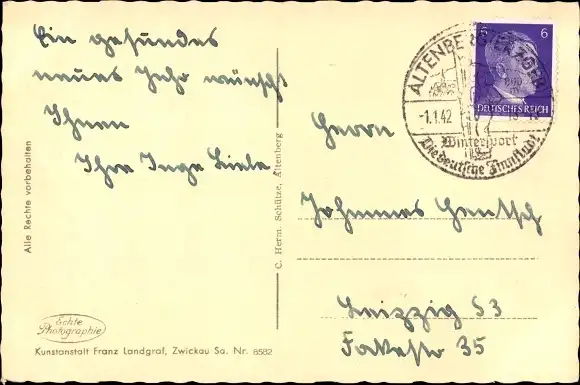 Ein gesundes
neues Jahr wünscht
Ihnen
Ihre Inge
Alle Rechte vorbehalten
Echte
Photographie
Kunstanstalt Franz Landgraf, Zwickau Sa. Nr. 8582
C. Herm. Schütze, Altenberg
ALTENBERG
-1.1.42
Wintersport
Die deutsche Zinnstadt
6 6
DEUTSCHES REICH
Herrn
Johannes Hantsch
Leipzig S3
35